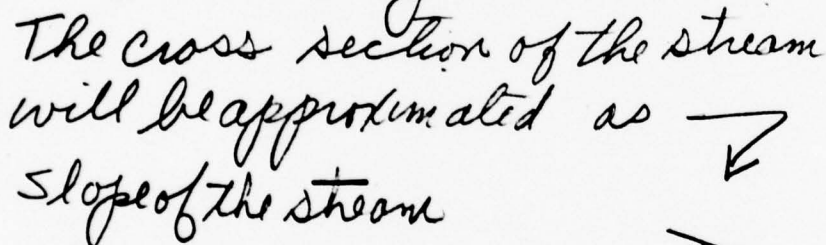 The cross section of the stream
will be approximated as
slope of the stream